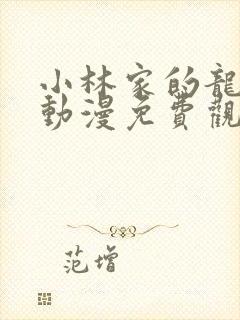 小林家的龍
動漫免費觀
范增